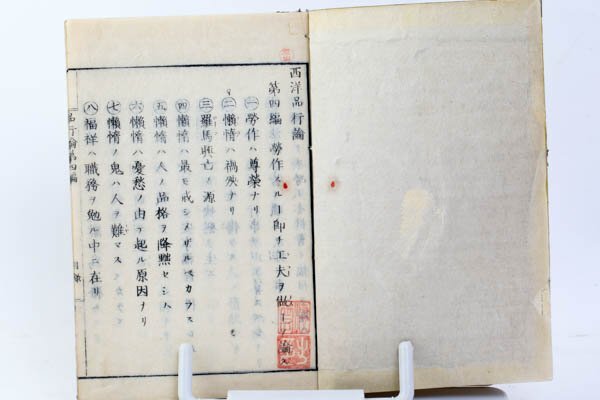 西洋品行論
第四編 勞作スル丁即チ工夫ヲ做
㊀勞作ハ尊榮ナリ
㊁懶惰ハ禍殃ナリ
㊂羅馬興亡ノ源
㊃懶惰ハ最モ戒シメザルベカラス
㊄懶惰ハ人ノ品格ヲ降黙セシ
㊅懶惰ハ憂愁ノ由テ起ル原因ナリ
㊆懶惰ノ鬼ハ人ヲ難マス
㊇福祥ハ職務ヲ勉ル中ニ在リ
品行論第四編
目錄